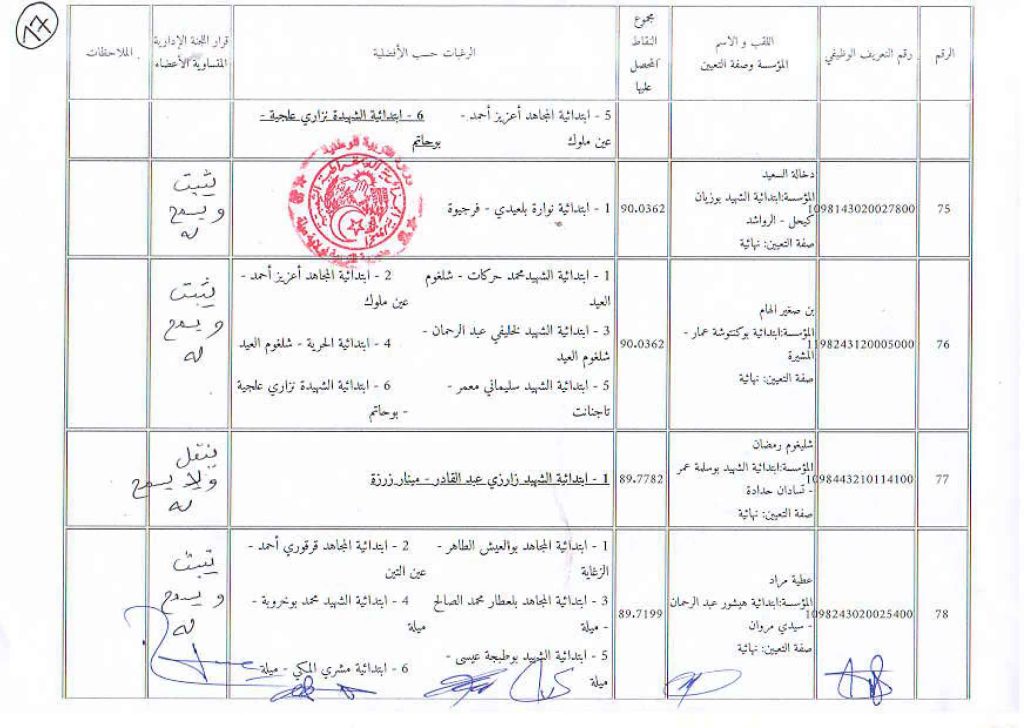 ١٧
الرقم
رقم التعريف الوظيفي
اللقب و الاسم
المؤسسة وصفة التعيين
مجموع
النقاط
المحصل
عليها
الرغبات حسب الأفضلية
قرار اللجنة الإدارية
المتساوية الأعضاء
الملاحظات
5 - ابتدائية المجاهد أعزيز أحمد -
عين ملوك
6 - ابتدائية الشهيدة نزاري علجية -
بوحاتم
75
1098143020027800
دخالة السعيد
المؤسسة:ابتدائية الشهيد بوزيان
كيحل - الرواشد
صفة التعيين: نهائية
90.0362
1 - ابتدائية نوارة بلعيدي - فرجيوة
يثبت
و يسمح
له
76
1198243120005000
بن صغير الهام
المؤسسة:ابتدائية بوكتتوشة عمار -
المشيرة
صفة التعيين: نهائية
90.0362
1 - ابتدائية الشهيدمحمد حركات - شلغوم
العيد
2 - ابتدائية المجاهد أعزيز أحمد -
عين ملوك
3 - ابتدائية الشهيد لخليفي عبد الرحمان -
شلغوم العيد
4 - ابتدائية الحرية - شلغوم العيد
5 - ابتدائية الشهيد سليماني معمر -
تاجنانت
6 - ابتدائية الشهيدة نزاري علجية
- بوحاتم
يثبت
و يسمح
له
77
1098443210114100
شليغوم رمضان
المؤسسة:ابتدائية الشهيد بوسلمة عمر
- تسادان حدادة
صفة التعيين: نهائية
89.7782
1 - ابتدائية الشهيد زارزي عبد القادر - مينار زرزة
ينقل
ولا يسمح
له
78
1098243020025400
عطية مراد
المؤسسة:ابتدائية هيشور عبد الرحمان
- سيدي مروان
صفة التعيين: نهائية
89.7199
1 - ابتدائية المجاهد بوالعيش الطاهر -
الزغاية
2 - ابتدائية المجاهد قرقوري أحمد -
عين التين
3 - ابتدائية المجاهد بلعطار محمد الصالح
- ميلة
4 - ابتدائية الشهيد محمد بوخروبة -
ميلة
5 - ابتدائية الشهيد بوطبجة عيسى -
ميلة
6 - ابتدائية مشري المكي - ميلة
يثبت
و يسمح
له